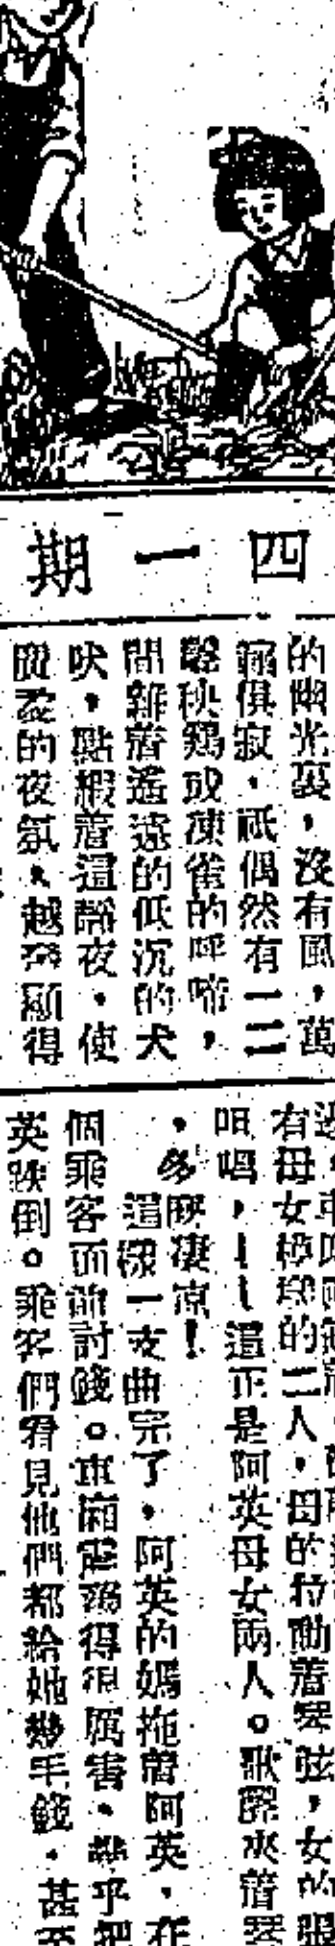 四一期
的幽光裏，沒有風，萬
籟俱寂，祇偶然有一二
聲秧鷄或凍雀的呼啼，
間雜着遙遠的低沉的犬
吠，點綴着這靜夜，使
的夜氛，越顯得
有母女模樣的二人，母的拉動着琴弦，女的
唱，——這正是阿英母女兩人。歌聲夾着琴
，多麽凄凉！
這樣一支曲完了，阿英的媽拖着阿英，在
個乘客面前討錢。車廂震蕩得很厲害，幾乎把
英跌倒。乘客們看見他們都給她幾毛錢，甚至